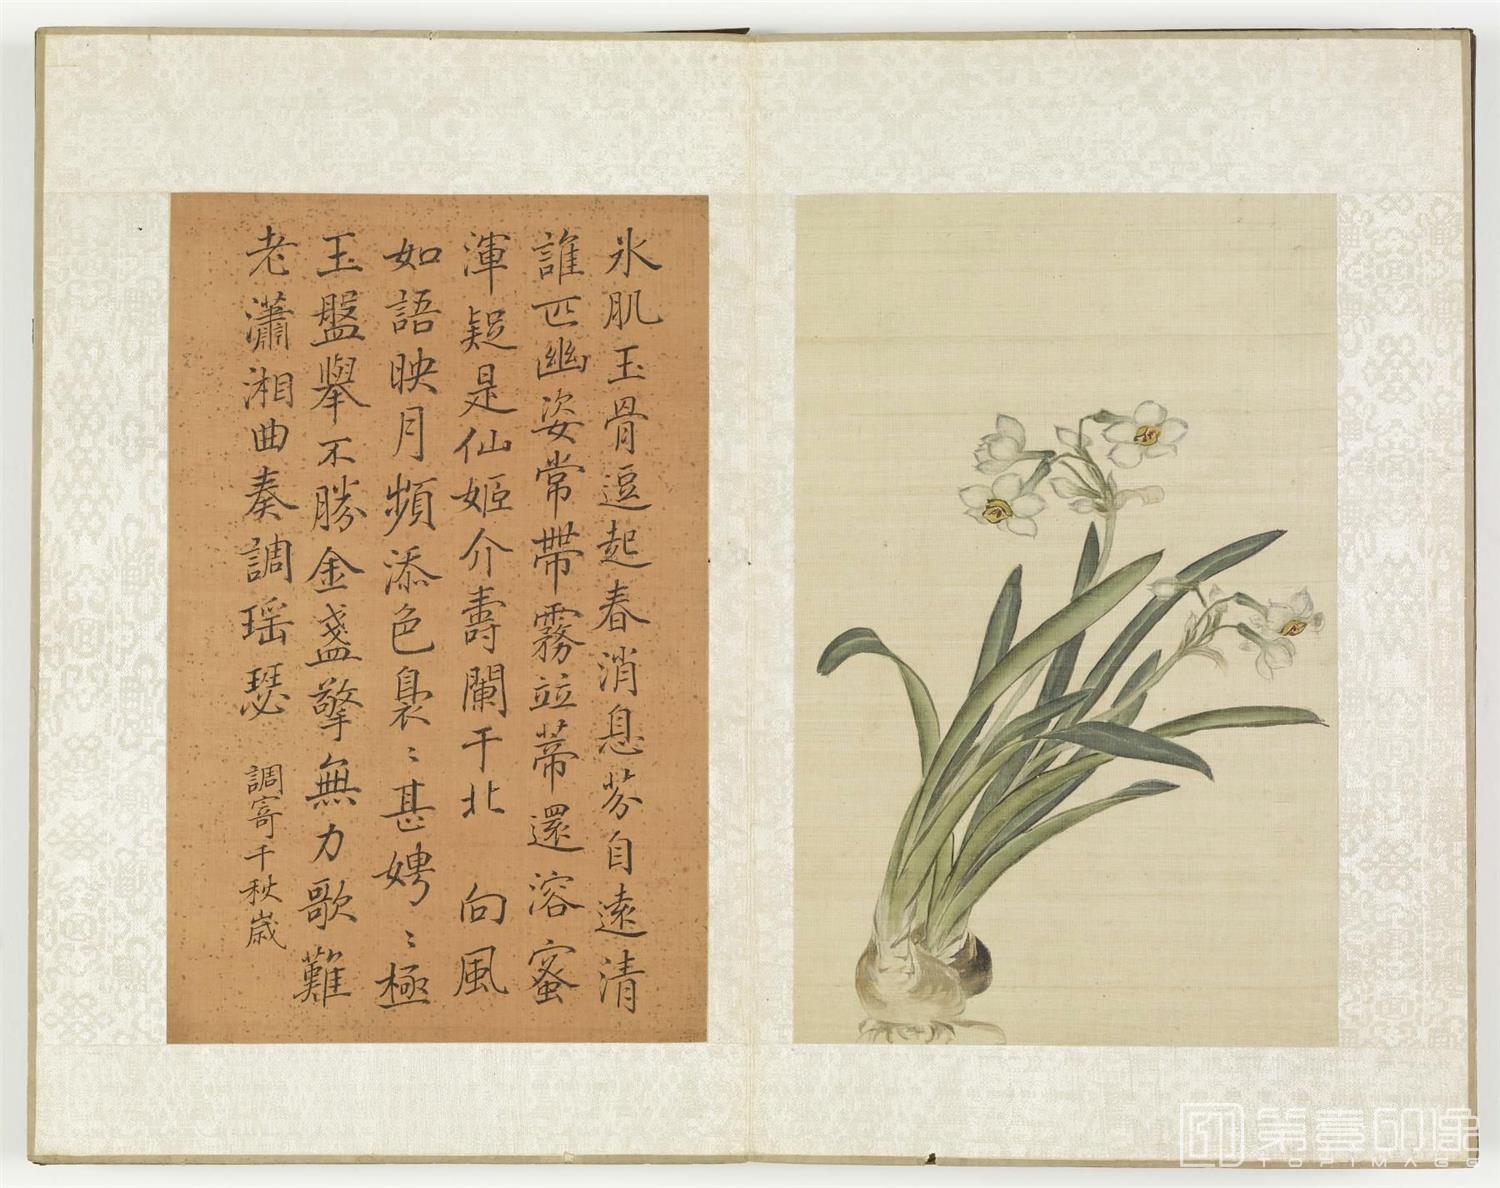 氷肌玉骨逗起春消息芬自遠清
誰匹幽姿常帶霧竝蒂還溶蜜
渾疑是仙姬介壽闌干北 向風
如語映月頻添色裊〻甚娉〻極
玉盤舉不勝金盞擎無力歌難
老瀟湘曲奏調瑶瑟 調寄千秋歲
第壹印象
TOPIMAGE